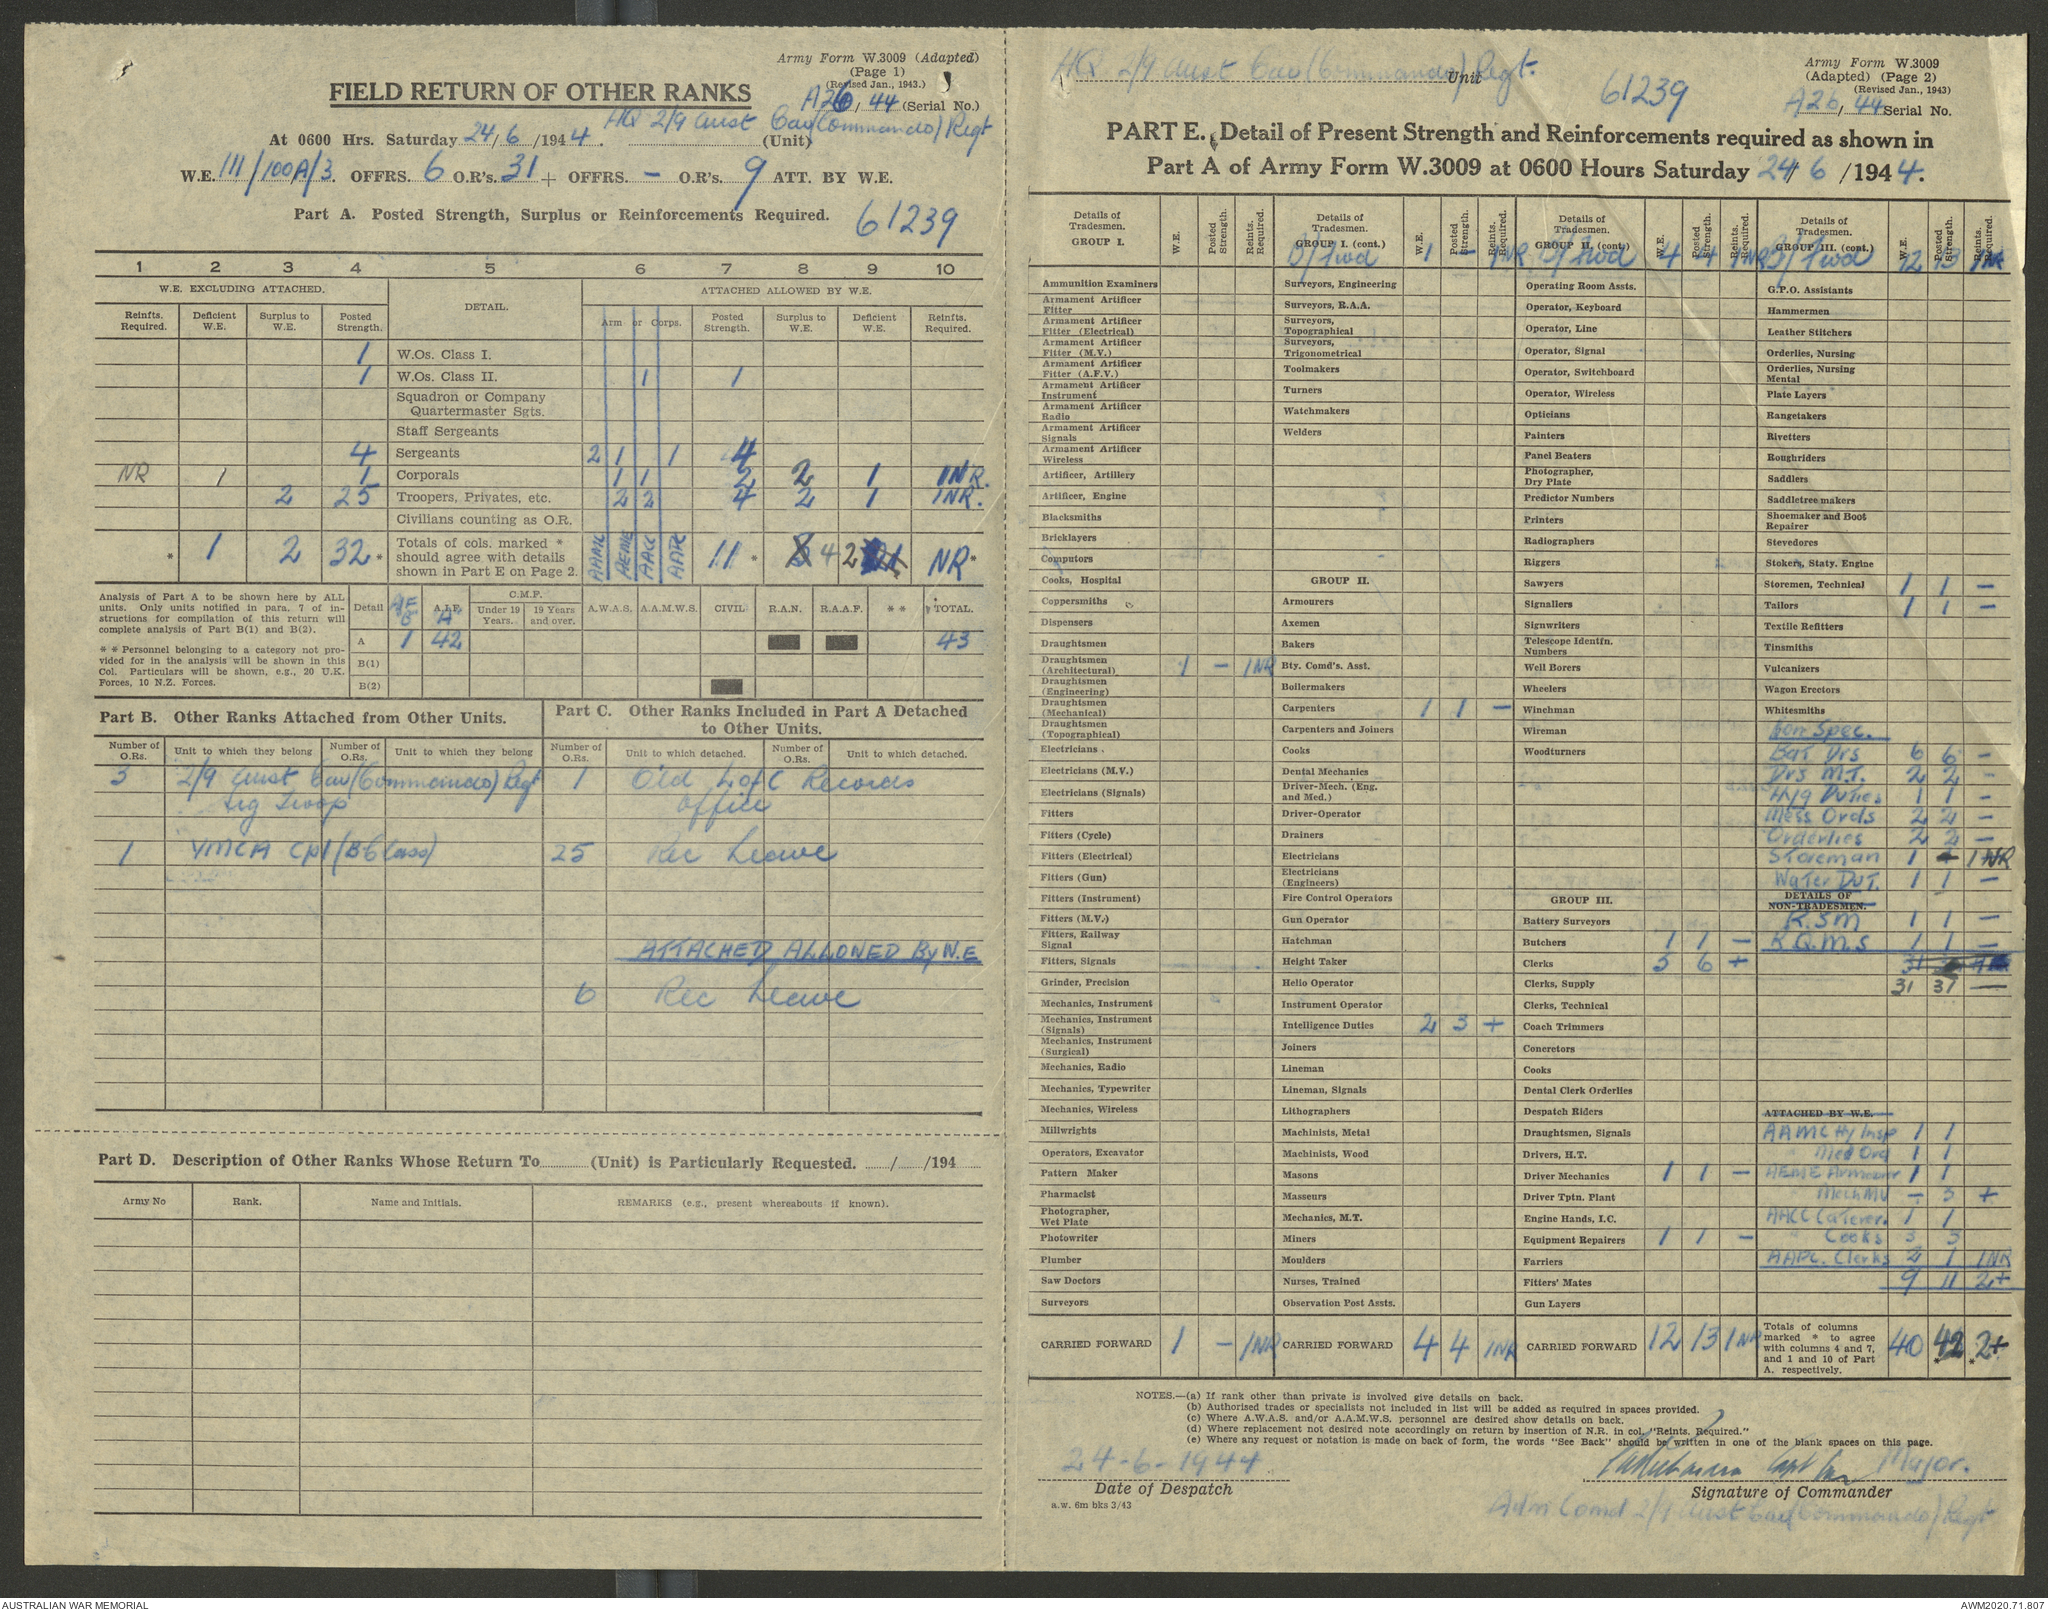 Army Form W.3009 (Adapted)
(Page 1)
(Revised Jan., 1943.)
FIELD RETURN OF OTHER RANKS
A26/44 (Serial No.)
At 0600 Hrs. Saturday 24/6/1944. HQ 2/9 Aust Cav (Commando) Regt (Unit)
W.E. 111/100A/3. OFFRS. 6 O.R's. 31 + OFFRS. – O.R's. 9 ATT. BY W.E.
Part A. Posted Strength, Surplus or Reinforcements Required. 61239
1 2 3 4 5 6 7 8 9 10
W.E. EXCLUDING ATTACHED. DETAIL. ATTACHED ALLOWED BY W.E.
Reinfts. Required. Deficient W.E. Surplus to W.E. Posted Strength. Arm or Corps. Posted Strength. Surplus to W.E. Deficient W.E. Reinfts. Required.
1 W.Os. Class I.
1 W.Os. Class II. 1 1
Squadron or Company
Quartermaster Sgts.
Staff Sergeants
4 Sergeants 2 1 1 4
NR 1 1 Corporals 1 1 2 2 1 1NR.
2 25 Troopers, Privates, etc. 2 2 4 2 1 1NR.
Civilians counting as O.R.
* 1 2 32* Totals of cols. marked * should agree with details shown in Part E on Page 2. AAMC AEME AACC AAPC 11 * 4 2 NR*
Analysis of Part A to be shown here by ALL
units. Only units notified in para. 7 of in-
structions for compilation of this return will
complete analysis of Part B(1) and B(2).
* * Personnel belonging to a category not pro-
vided for in the analysis will be shown in this
Col. Particulars will be shown, e.g., 20 U.K.
Forces, 10 N.Z. Forces.
Detail AIF B A.I.F. "A" C.M.F. Under 19 Years. 19 Years and over. A.W.A.S. A.A.M.W.S. CIVIL R.A.N. R.A.A.F. * * TOTAL.
A 1 42 43
B(1)
B(2)
Part B. Other Ranks Attached from Other Units.
Part C. Other Ranks Included in Part A Detached
to Other Units.
Number of O.Rs. Unit to which they belong Number of O.Rs. Unit to which they belong Number of O.Rs. Unit to which detached. Number of O.Rs. Unit to which detached.
3 2/9 Aust Cav (Commando) Regt 1 Q'ld L of C Records
Sig Troop Office
1 YMCA Cpl (B Class) 25 Rec Leave
ATTACHED ALLOWED By W.E
6 Rec Leave
Part D. Description of Other Ranks Whose Return To (Unit) is Particularly Requested. / /194
Army No Rank. Name and Initials. REMARKS (e.g., present whereabouts if known).
HQ 2/9 Aust Cav (Commando) Regt. Unit
61239
Army Form W.3009
(Adapted) (Page 2)
(Revised Jan., 1943)
A26/44 Serial No.
PART E. Detail of Present Strength and Reinforcements required as shown in
Part A of Army Form W.3009 at 0600 Hours Saturday 24/6/1944.
Details of Tradesmen. GROUP I. W.E. Posted Strength. Reints. Required.
Ammunition Examiners
Armament Artificer Fitter
Armament Artificer Fitter (Electrical)
Armament Artificer Fitter (M.V.)
Armament Artificer Fitter (A.F.V.)
Armament Artificer Instrument
Armament Artificer Radio
Armament Artificer Signals
Armament Artificer Wireless
Artificer, Artillery
Artificer, Engine
Blacksmiths
Bricklayers
Computors
Cooks, Hospital
Coppersmiths
Dispensers
Draughtsmen
Draughtsmen (Architectural) 1 – 1NR
Draughtsmen (Engineering)
Draughtsmen (Mechanical)
Draughtsmen (Topographical)
Electricians
Electricians (M.V.)
Electricians (Signals)
Fitters
Fitters (Cycle)
Fitters (Electrical)
Fitters (Gun)
Fitters (Instrument)
Fitters (M.V.)
Fitters, Railway Signal
Fitters, Signals
Grinder, Precision
Mechanics, Instrument
Mechanics, Instrument (Signals)
Mechanics, Instrument (Surgical)
Mechanics, Radio
Mechanics, Typewriter
Mechanics, Wireless
Millwrights
Operators, Excavator
Pattern Maker
Pharmacist
Photographer, Wet Plate
Photowriter
Plumber
Saw Doctors
Surveyors
CARRIED FORWARD 1 – 1NR
Details of Tradesmen. GROUP I. (cont.) W.E. Posted Strength. Reints. Required.
B/Fwd 1 – 1NR
Surveyors, Engineering
Surveyors, R.A.A.
Surveyors, Topographical
Surveyors, Trigonometrical
Toolmakers
Turners
Watchmakers
Welders
GROUP II.
Armourers
Axemen
Bakers
Bty. Comd's. Asst.
Boilermakers
Carpenters 1 1 –
Carpenters and Joiners
Cooks
Dental Mechanics
Driver-Mech. (Eng. and Med.)
Driver-Operator
Drainers
Electricians
Electricians (Engineers)
Fire Control Operators
Gun Operator
Hatchman
Height Taker
Helio Operator
Instrument Operator
Intelligence Duties 2 3 +
Joiners
Lineman
Lineman, Signals
Lithographers
Machinists, Metal
Machinists, Wood
Masons
Masseurs
Mechanics, M.T.
Miners
Moulders
Nurses, Trained
Observation Post Assts.
CARRIED FORWARD 4 4 1NR
Details of Tradesmen. GROUP II. (cont) W.E. Posted Strength. Reints. Required.
B/Fwd 4 4 1NR
Operating Room Assts.
Operator, Keyboard
Operator, Line
Operator, Signal
Operator, Switchboard
Operator, Wireless
Opticians
Painters
Panel Beaters
Photographer, Dry Plate
Predictor Numbers
Printers
Radiographers
Riggers
Sawyers
Signallers
Signwriters
Telescope Identfn. Numbers
Well Borers
Wheelers
Winchman
Wireman
Woodturners
GROUP III.
Battery Surveyors
Butchers 1 1 –
Clerks 5 6 +
Clerks, Supply
Clerks, Technical
Coach Trimmers
Concretors
Cooks
Dental Clerk Orderlies
Despatch Riders
Draughtsmen, Signals
Drivers, H.T.
Driver Mechanics 1 1 –
Driver Tptn. Plant
Engine Hands, I.C.
Equipment Repairers 1 1 –
Farriers
Fitters' Mates
Gun Layers
CARRIED FORWARD 12 13 1NR
Details of Tradesmen. GROUP III. (cont.) W.E. Posted Strength. Reints. Required.
B/Fwd 12 13 1NR
G.P.O. Assistants
Hammermen
Leather Stitchers
Orderlies, Nursing
Orderlies, Nursing Mental
Plate Layers
Rangetakers
Rivetters
Roughriders
Saddlers
Saddletree makers
Shoemaker and Boot Repairer
Stevedores
Stokers, Staty. Engine
Storemen, Technical 1 1 –
Tailors 1 1 –
Textile Refitters
Tinsmiths
Vulcanizers
Wagon Erectors
Whitesmiths
Non Spec.
Bat Drs 6 6 –
Drs M.T. 2 2 –
Hyg Duties 1 1 –
Mess Ords 2 2 –
Orderlies 2 2 –
Storeman 1 – 1NR
Water Dut. 1 1 –
DETAILS OF NON-TRADESMEN.
R.S.M 1 1 –
R.Q.M.S 1 1 –
31
31 31 —
ATTACHED BY W.E.
AAMC Hy Insp 1 1
" Med Ord 1 1
AEME Armourer 1 1
Mech MV – 3 +
AACC Caterer. 1 1
" Cooks 3 3
AAPC. Clerks 2 1 1NR
9 11 2+
Totals of columns marked * to agree with columns 4 and 7, and 1 and 10 of Part A. respectively. 40 42* *2+
NOTES.—(a) If rank other than private is involved give details on back.
(b) Authorised trades or specialists not included in list will be added as required in spaces provided.
(c) Where A.W.A.S. and/or A.A.M.W.S. personnel are desired show details on back.
(d) Where replacement not desired note accordingly on return by insertion of N.R. in col. "Reints. Required."
(e) Where any request or notation is made on back of form, the words "See Back" should be written in one of the blank spaces on this page.
24-6-1944
Capt for Major.
Date of Despatch
Signature of Commander
a.w. 6m bks 3/43
Adm Comd 2/9 Aust Cav (Commando) Regt
AUSTRALIAN WAR MEMORIAL
AWM2020.71.807